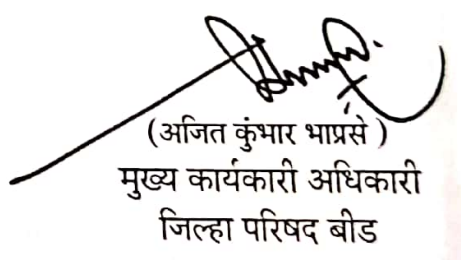 (अजित कुंभार भाप्रसे )
मुख्य कार्यकारी अधिकारी
जिल्हा परिषद बीड